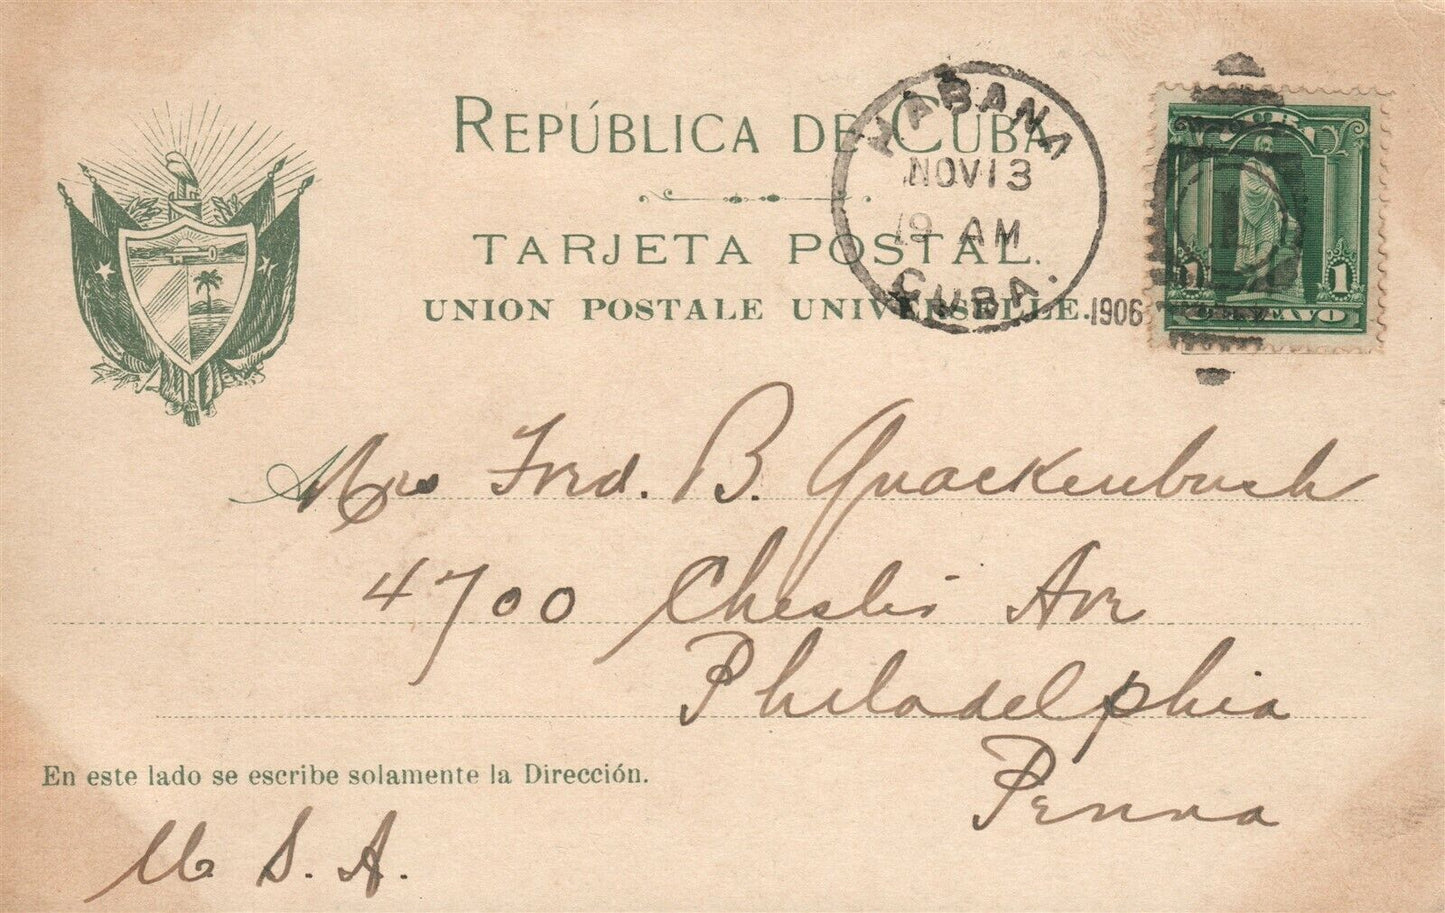 REPÚBLICA DE CUBA
TARJETA POSTAL.
UNION POSTALE UNIVERSELLE.
HABANA
NOV 13
19 AM
CUBA.
1906
CUBA
1
1 1
CENTAVO
Mrs Fred. B. Quackenbush
4700 Chester Ave
Philadelphia
Penna
En este lado se escribe solamente la Dirección.
U. S. A.